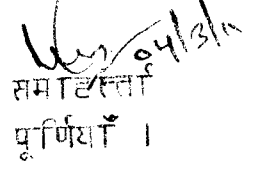 04/3/11
समाहर्त्ता
पूर्णियाँ ।